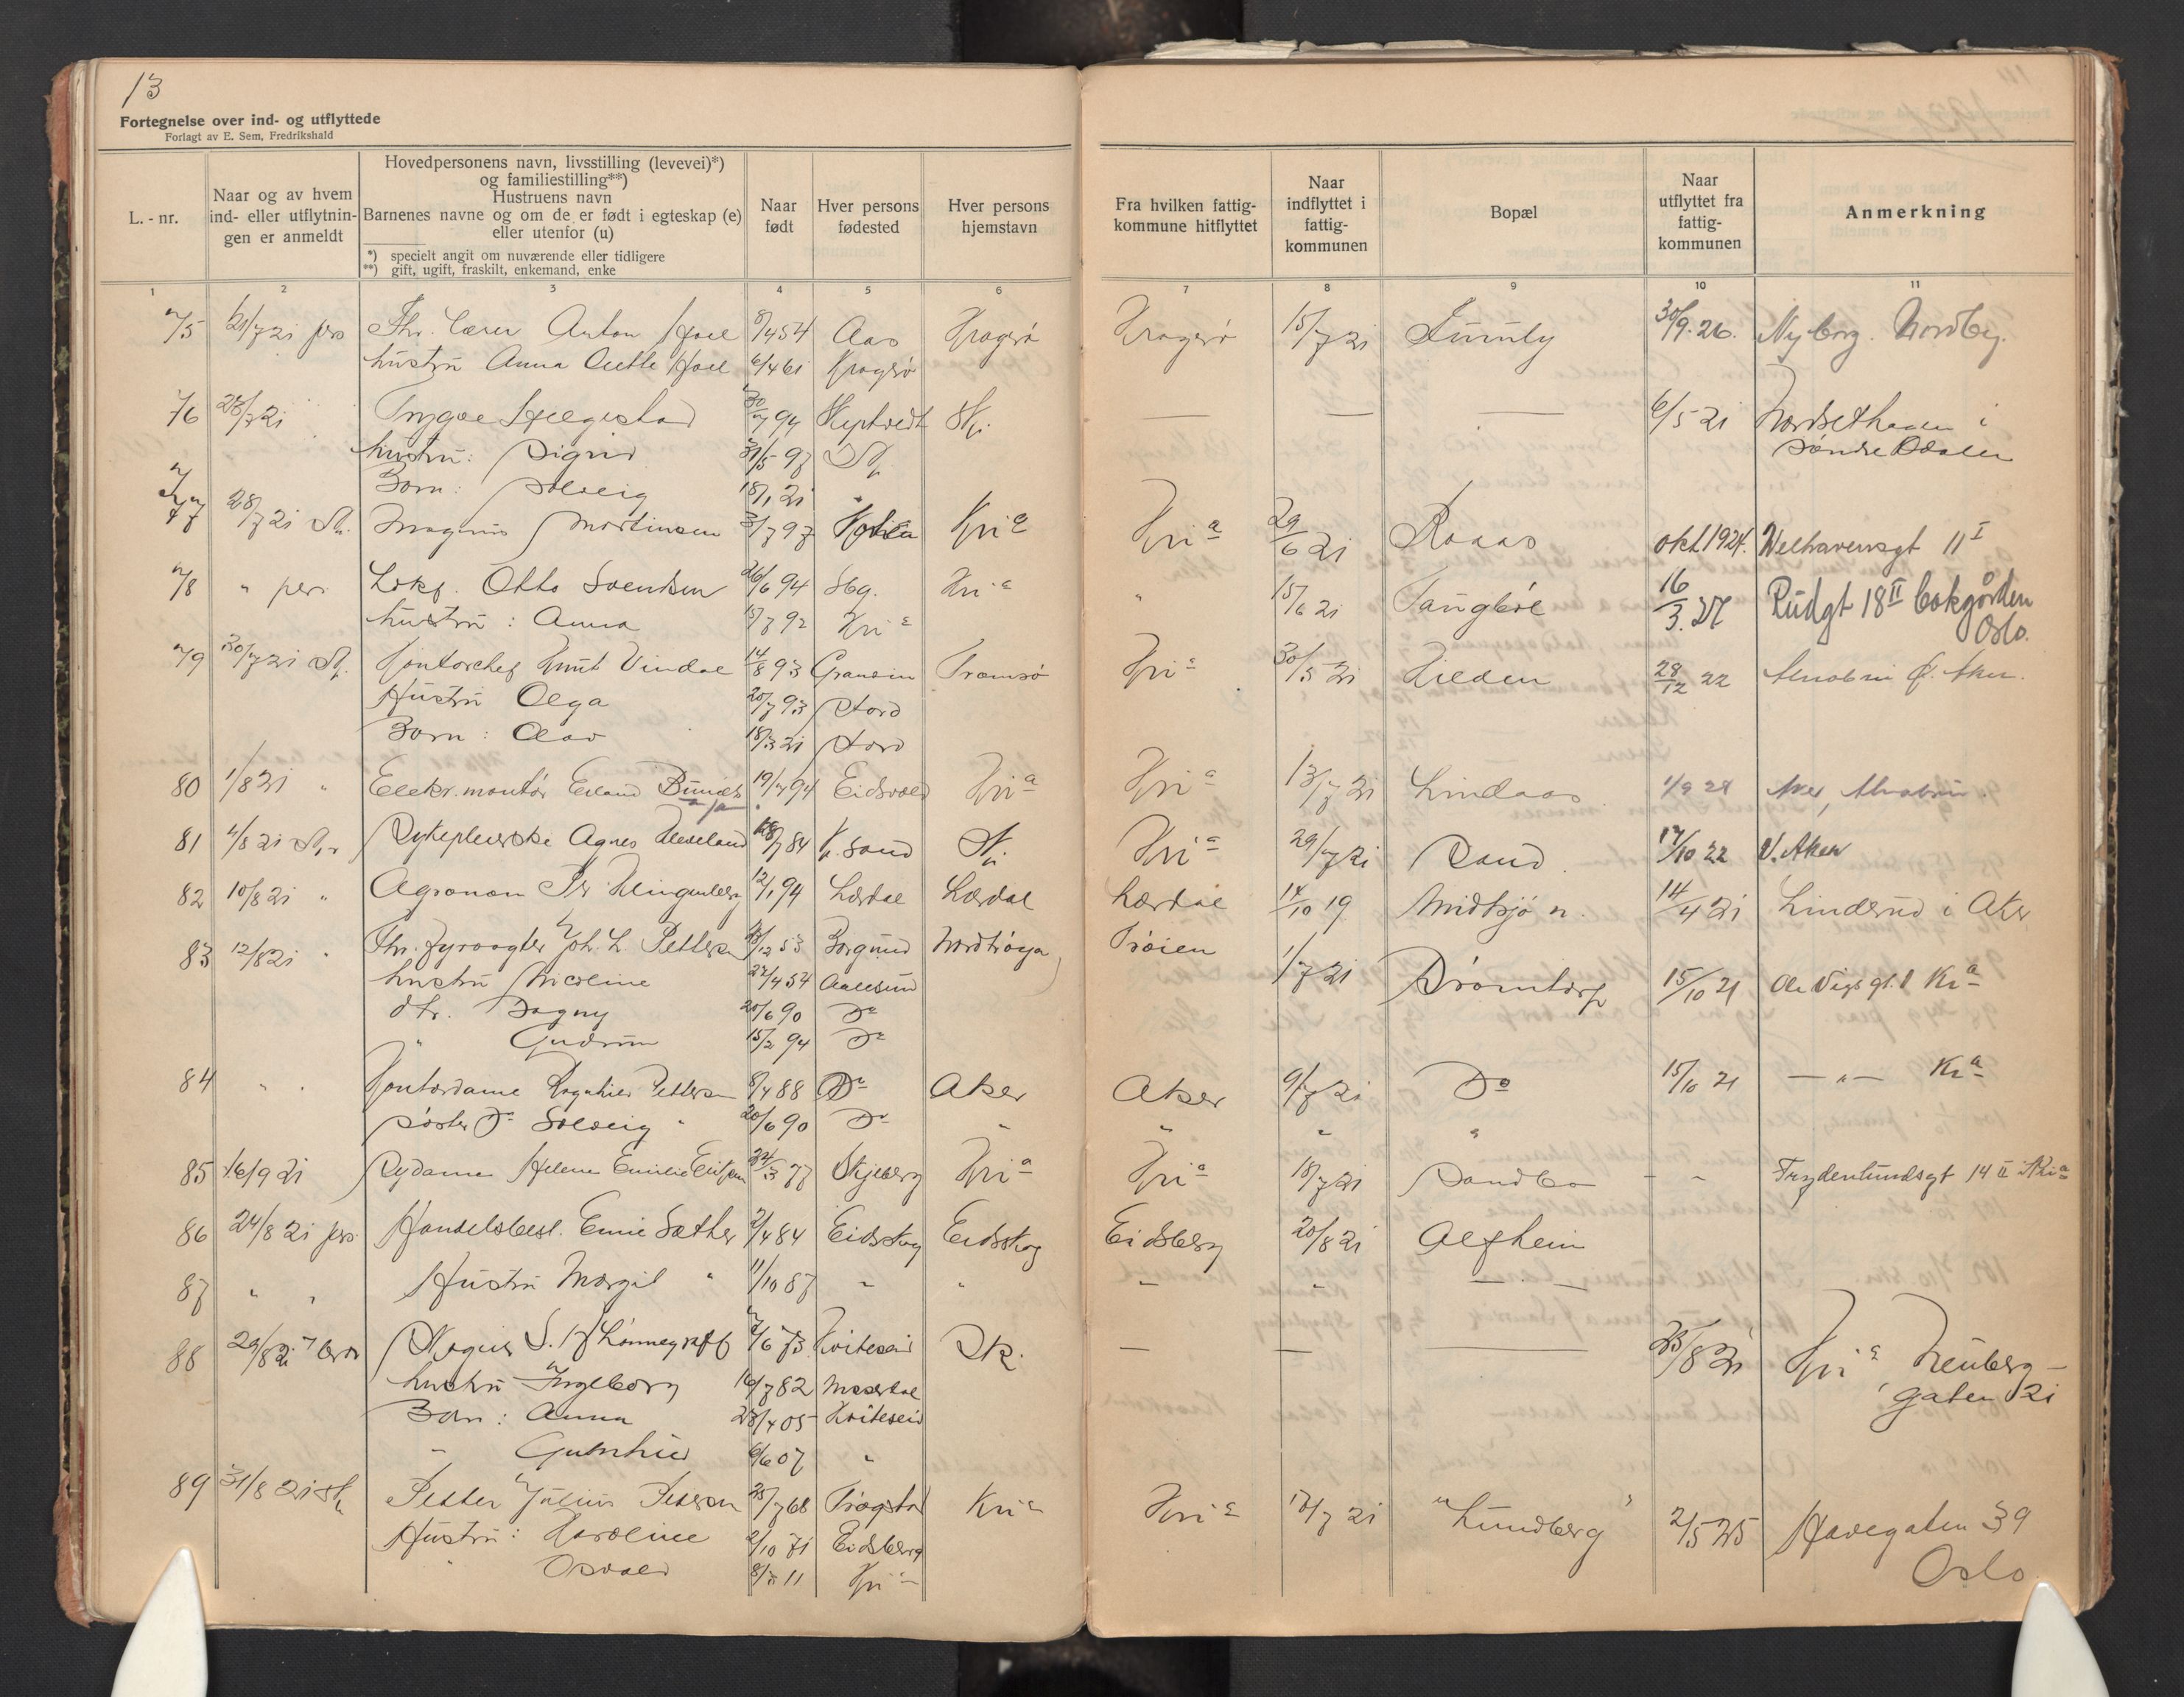 13
Fortegnelse over ind- og utflyttede
Forlagt av E. Sem, Fredrikshald
L.-nr.
Naar og av hvem ind- eller utflytningen er anmeldt
Hovedpersonens navn, livsstilling (levevei)*)
og familiestilling**)
Hustruens navn
Barnenes navne og om de er født i egteskap (e)
eller utenfor (u)
*) specielt angit om nuværende eller tidligere
**) gift, ugift, fraskilt, enkemand, enke
Naar født
Hver persons fødested
Hver persons hjemstavn
Fra hvilken fattigkommune hitflyttet
Naar indflyttet i fattigkommunen
Bopæl
Naar utflyttet fra fattigkommunen
Anmerkning
1 2 3 4 5 6 7 8 9 10 11
75 21/7 21 pers Fhr. Anton Hoel 8/4 54 Aas 15/7 21 30/9.26. Nyborg. Nordby.
hustru Anna Hoel 6/4 61
76 28/7 21 Trygve Helgestad 94 Ski — — — 6/5 21 i
hustru: Sigrid 31/5 97 Søndre Odalen
Barn: Solveig 18/1 21
77 28/7 21 Magnus Martinsen 3/7 97 Kria Kria 29/6 21 Roaas okt 1924. Welhavensgt 11 I
78 " pers Lokf. Otto Svendsen 26/6 94 Sbg. Kria " 15/6 21 16/3.27 Rudgt 18 II Oslo.
hustru: Anna 15/7 92 Kria
79 30/7 21 Kontorchef Knut Vindal 14/8 93 Granvin Tromsø Kria 30/5 21 Lilden 28/12 22 Ø. Aker.
Hustru Olga 20/7 93 Stord
Barn: Olav 18/3 21 Stord
80 1/8 21 " Elekr. montør Erland 19/4 94 Eidsvold Kria Kria 13/7 21 Lindaas
81 4/8 21 Sykepleierske Agnes Kleveland 84 Kr. sand Ski Kria 29/7 21 Sand 17/10 22 V. Aker
82 10/8 21 " Agronom Pr Klingenberg 12/1 94 Lærdal Lærdal Lærdal 14/10 19 Midtsjø n. 14/4 21 Linderud i Aker
83 12/8 21 " Fhr. fyrvogter Joh. L. Pettersen 12 53 Borgund Nordtrøya 1/7 21 Drømtorp 15/10 21 Ole Vigs gt. 1 Kra
hustru Nicoline 27/4 54 Aalesund
dtr. Dagny 20/6 90 Do
" Gudrun 15/2 94 Do
84 " " Kontordame Ragnhild Pettersen 8/4 88 Do Aker Aker 9/7 21 Do 15/10 21 — " — Kra
søster Do Solveig " 20/6 90 Do " " " "
85 16/9 21 Sydame Helene Emilie 77 Skjeberg Kria Kria 18/7 21 Sandbo - " Frydenlundsgt 14 II Kria
86 24/8 21 pers Handelsbest. Emil Sæther 2/4 84 Eidskog Eidskog Eidsberg 20/8 21 Alfheim
87 " " Hustru Margit " 11/10 87 " " " " —
88 29/8 21 S. 73 Kviteseid Ski — — — 8 21 Kria Neuberg-
hustru Ingeborg 16/7 82 gaten 21
Barn: Anna 28/4 05 Kviteseid
" Gunhild 6/6 07 "
89 31/8 21 Petter Julius 25/7 68 Trøgstad Kria Kria 21 "Lundberg" 2/5 25 Havegaten 39
Hustru: Karoline 2/10 71 Eidsberg Oslo
" Osvald 11 Kria